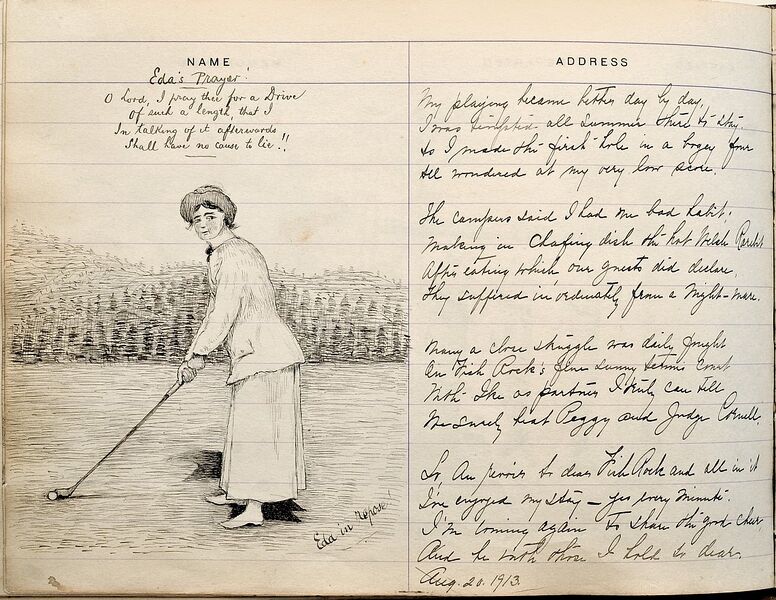 NAME
Eda's Prayer!
O Lord, I pray thee for a Drive
Of such a length, that I
In talking of it afterwards
Shall have no cause to lie!!
Eda in repose!
ADDRESS
My playing became better day by day,
I was tempted all summer there to stay.
As I made the first hole in a bogey four
All wondered at my very low score.
The campers said I had one bad habit;
Making in Chafing dish the hot Welsh Rarebit
After eating which, our guests did declare,
They suffered inordinately from a Night-mare.
Many a close struggle was daily fought
On Fish Rock's fine sunny tennis court
With Ike as partner I truly can tell
We surely beat Peggy and Judge Cornell.
So, Au revoir to dear Fish Rock and all in it
I've enjoyed my stay – yes every minute.
I'm coming again to share the good cheer
And be with those I hold so dear.
Aug. 20. 1913.